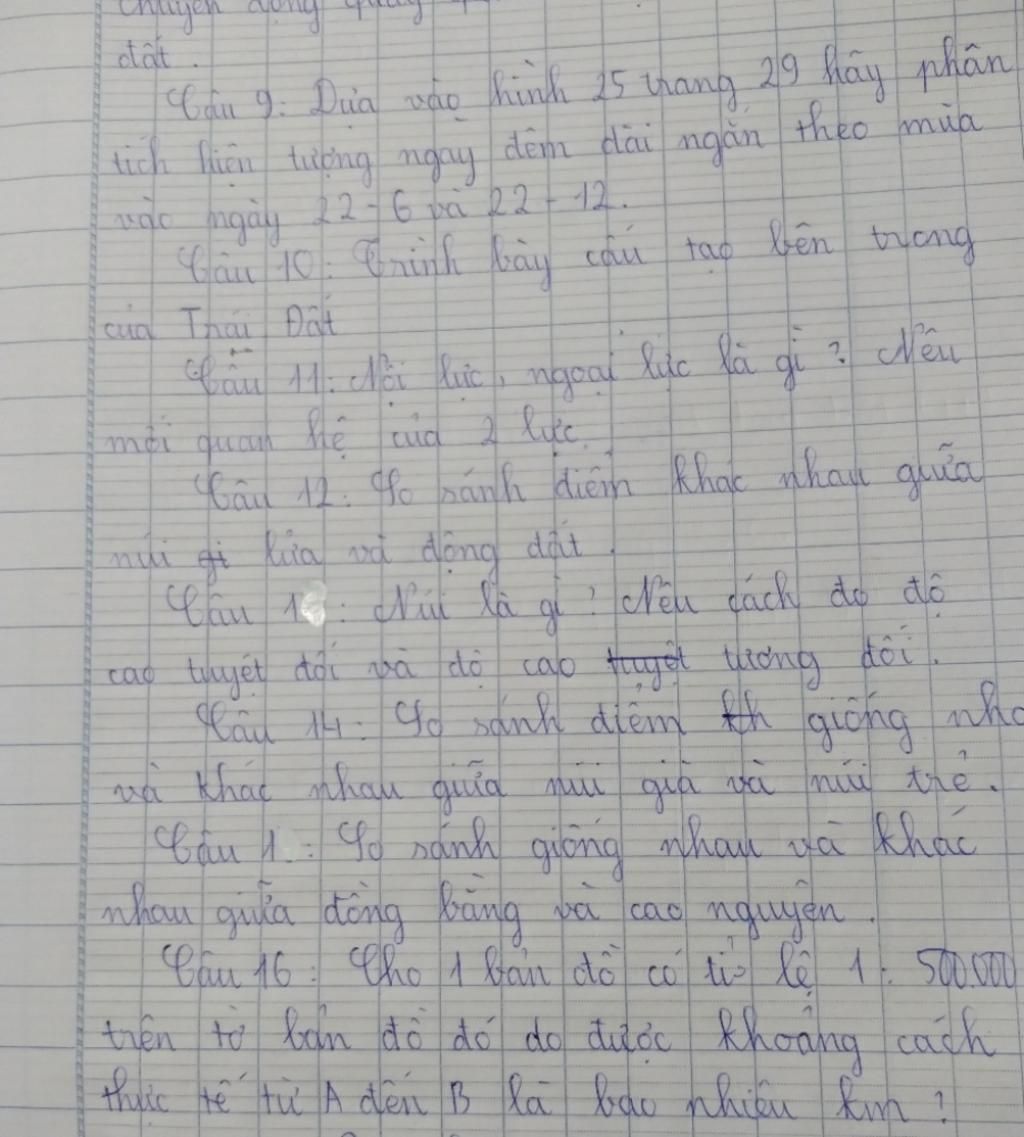 chuyển động quay
đất.
Câu 9: Dựa vào hình 25 trang 29 hãy phân
tích hiện tượng ngày đêm dài ngắn theo mùa
vào ngày 22-6 và 22-12.
Câu 10: Trình bày cấu tạo bên trong
của Thái Đất
Câu 11: Nội lực, ngoại lực là gì? Nêu
mối quan hệ của 2 lực.
Câu 12: So sánh điểm khác nhau giữa
núi lửa và động đất.
Câu 13: Núi là gì? Nêu cách đo độ
cao tuyệt đối và độ cao tương đối.
Câu 14: So sánh điểm giống nha
và khác nhau giữa núi già và núi trẻ.
Câu 1 : So sánh giống nhau và khác
nhau giữa đồng bằng và cao nguyên.
Câu 16: Cho 1 bản đồ có tỉ lệ 1: 500.000
trên tờ bản đồ đó đo được khoảng cách
thực tế từ A đến B là bao nhiêu km?